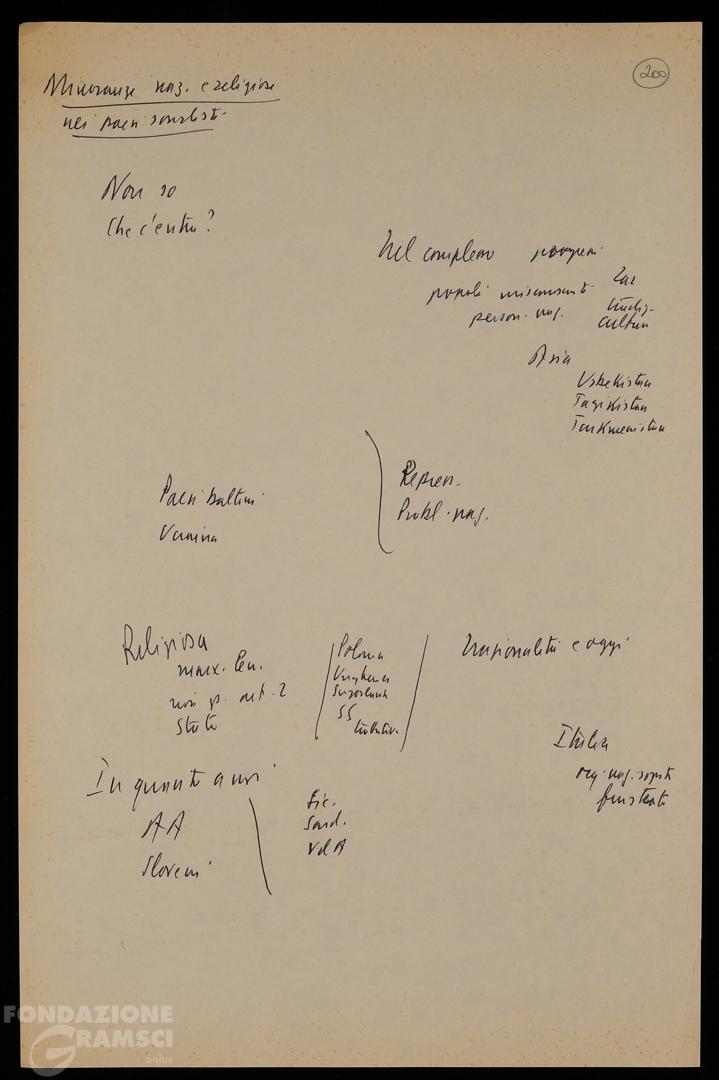 200
Minoranze naz. e religiose
nei paesi socialisti
Non so
Che c'entra?
Nel complesso progressi
popoli misconosciuti Zar
person. naz.
cultura
Asia
Usbekistan
Tagikistan
Turkmenistan
Paesi baltici
Ucraina
Repress.
Probl. naz.
Religiosa
marx. len.
non p. art. 2
Stato
Polonia
Ungheria
Jugoslavia
SS
Nazionalità e oggi
Italia
frustrate
In quanto a noi
AA
Sloveni
Sic.
Sard.
Vd A
FONDAZIONE
GRAMSCI
onlus